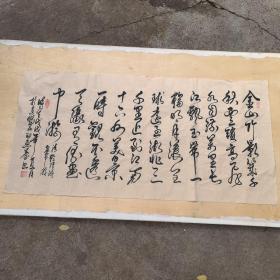 金山竹影几千
秋云锁高飞
水自流万里长
江飘玉带一
轮明月滚金
球远至湖北三
千里近到江南
十六州美景
一时观不透
天缘有份画
中游